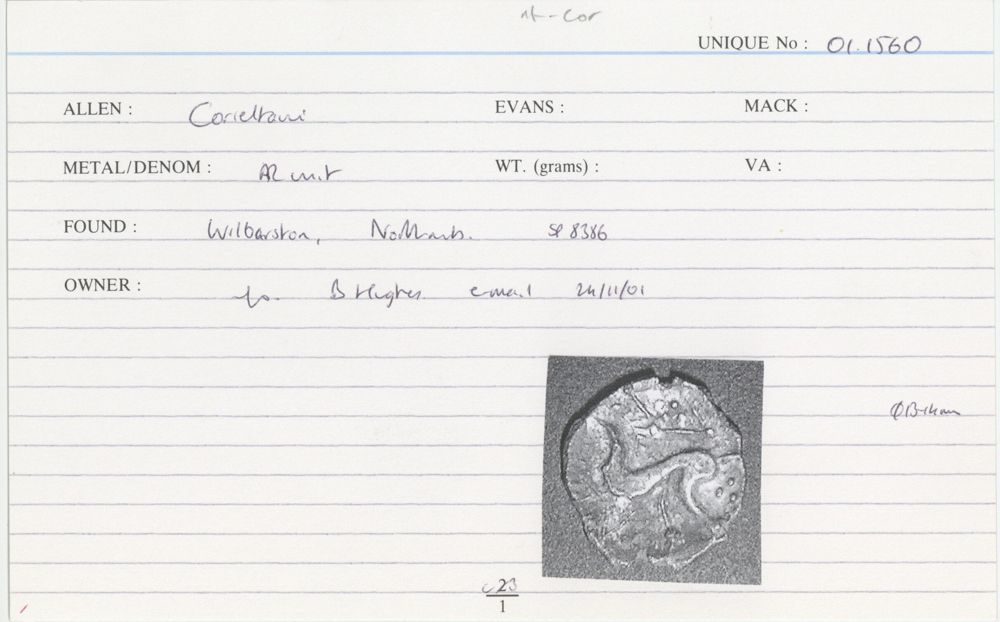 UNIQUE No : 01.1560
ALLEN : Corieltavi EVANS : MACK :
METAL/DENOM : AR unit WT. (grams) : VA :
FOUND : Wilbarston, Northants. SP 8386
OWNER : B Hughes email 24/11/01
23
1